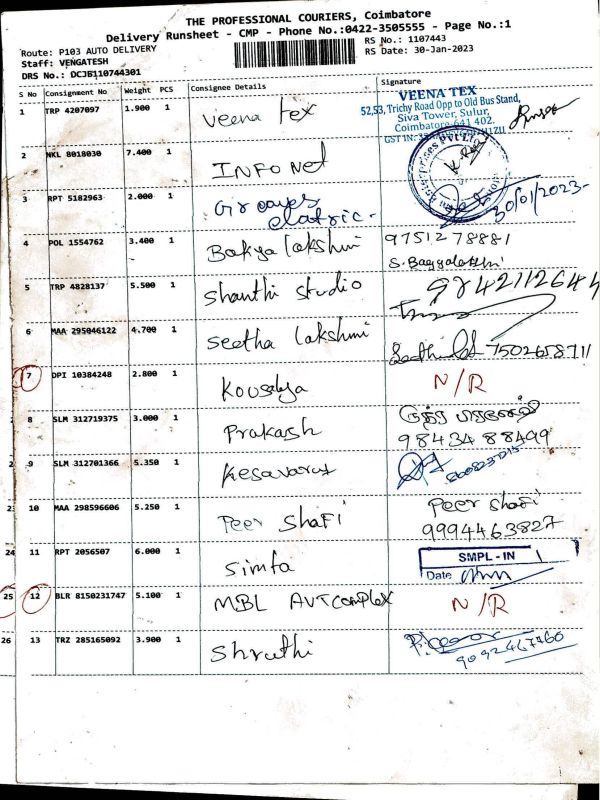 THE PROFESSIONAL COURIERS, Coimbatore
Delivery Runsheet - CMP - Phone No.:0422-3505555 - Page No.:1
Route: P103 AUTO DELIVERY
RS No.: 1107443
Staff: VENGATESH
RS Date: 30-Jan-2023
DRS No.: DCJB110744301
S No Consignment No Weight PCS Consignee Details Signature
1 TRP 4207097 1.900 1 Veena tex
VEENA TEX
52,53, Trichy Road Opp to Old Bus Stand,
Siva Tower, Sulur,
Coimbatore-641 402.
GST IN:
2 NKL 8018030 7.400 1 INFONet
3 RPT 5182963 2.000 1 Greaves
elatric - 30/01/2023-
4 POL 1554762 3.400 1 Bakya lakshmi 9751278881
S. Baggalakshmi
5 TRP 4828137 5.500 1 Shanthi studio 9842112644
6 MAA 295046122 4.700 1 Seetha lakshmi 7502658711
7 DPI 10384248 2.800 1 Kousalya N/R
8 SLM 312719375 3.000 1 Prakash
9843488499
9 SLM 312701366 5.350 1 Kesavaraj
23 10 MAA 298596606 5.250 1 Peer Shafi Peer Shafi
9994463827
24 11 RPT 2056507 6.000 1 Simta SMPL - IN
Date
25 12 BLR 8150231747 5.100 1 MBL AVT Complex N/R
26 13 TRZ 285165092 3.900 1 Shruthi
9092467460